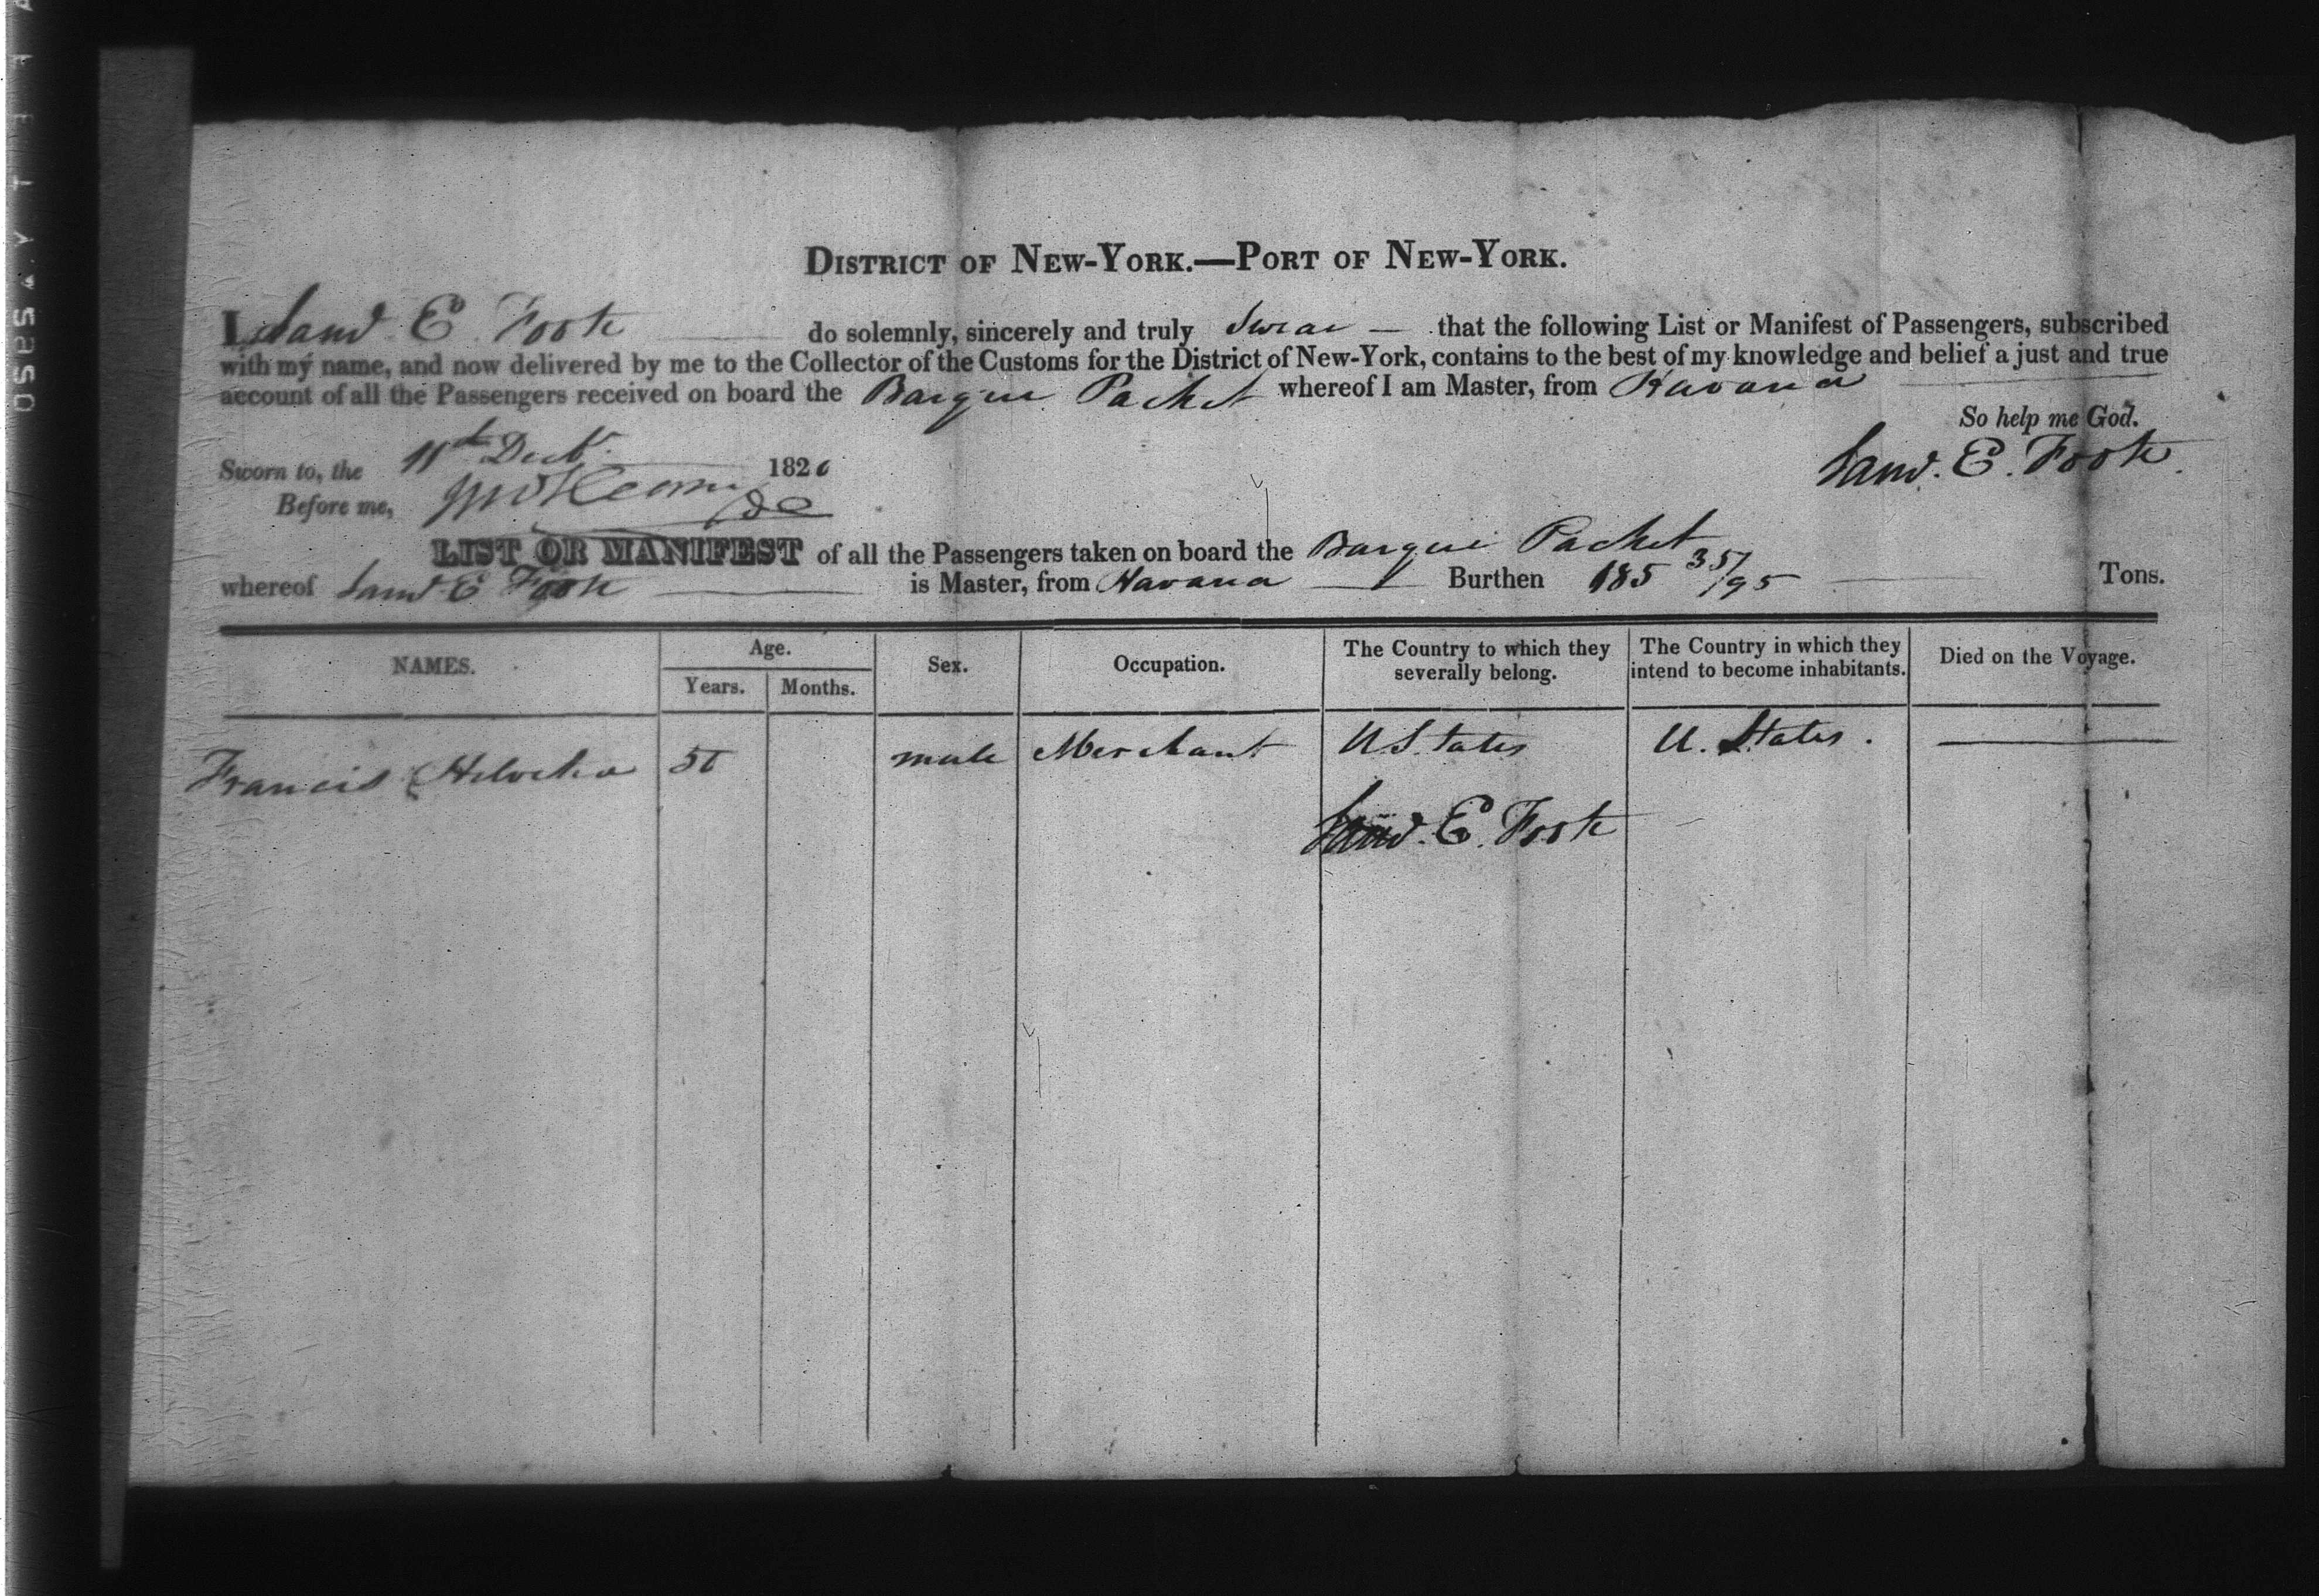 DISTRICT OF NEW-YORK.—PORT OF NEW-YORK.
I Saml E Foote do solemnly, sincerely and truly Swear — that the following List or Manifest of Passengers, subscribed
with my name, and now delivered by me to the Collector of the Customs for the District of New-York, contains to the best of my knowledge and belief a just and true
account of all the Passengers received on board the Barque Packet whereof I am Master, from Havana
So help me God.
Sworn to, the 11th Decbr 1826
Saml. E. Foote.
Before me,
LIST OR MANIFEST of all the Passengers taken on board the Barque Packet
whereof Saml E Foote is Master, from Havana Burthen 185 35/95 Tons.
NAMES. Age. Sex. Occupation. The Country to which they severally belong. The Country in which they intend to become inhabitants. Died on the Voyage.
Years. Months.
Francis male Merchant U States U. States.
Saml. E. Foote